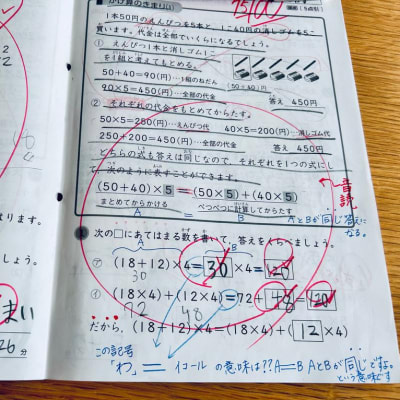 かけ算のきまり(1)
1本50円のえんぴつを5本と、1こ40円の消しゴムを5こ
買います。代金は全部でいくらになるでしょう。
① えんぴつ1本と消しゴム1こ
を1組と考えてもとめる。
50+40=90(円)…1組のねだん
90×5=450(円)…全部の代金
答え 450円
② それぞれの代金をもとめてからたす。
50×5=250(円)…えんぴつ代 40×5=200(円)…消しゴム代
250+200=450(円)…全部の代金 答え 450円
どちらの式も答えは同じなので、それぞれを1つの式にし
て、次のように表すことができます。
(50+40)×5=(50×5)+(40×5)
まとめてからかける べつべつに計算してからたす
A = B
AとBが同じ答えになる。
音読
次の□にあてはまる数を書いて、答えをくらべましょう。
A B
㋐ (18+12)×4=30×4=120
30
㋑ (18×4)+(12×4)=72+48=120
72 48
だから、(18+12)×4=(18×4)+(12×4)
この記号
「わ」= イコール の意味は??A=B AとBが同じですよ。
という意味です